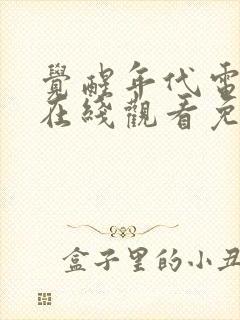 覺醒年代電
在綫觀看免
盒子里的小丑